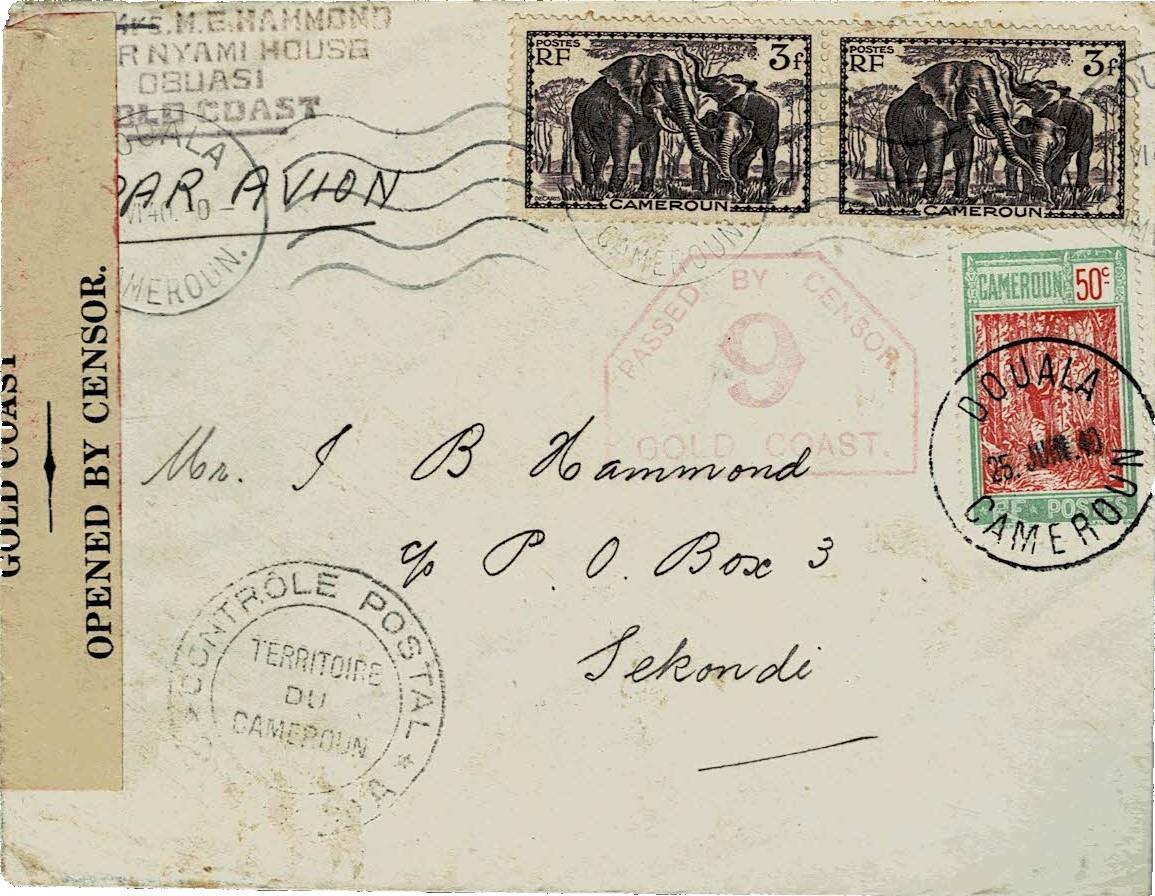 M.E. HAMMOND
NYAMI HOUSE
OBUASI
GOLD COAST
DOUALA
VI 40
CAMEROUN.
PAR AVION
POSTES
RF
3f
DECARIS
CAMEROUN
POSTES
RF
3f
CAMEROUN
CAMEROUN
CAMEROUN 50c
RF POSTES
DOUALA
25. JUIN. 40
CAMEROUN
PASSED BY CENSOR.
9
GOLD COAST.
GOLD COAST
OPENED BY CENSOR.
Mr. I B Hammond
c/o P. O. Box 3
Sekondi
CONTRÔLE POSTAL
TERRITOIRE
DU
CAMEROUN